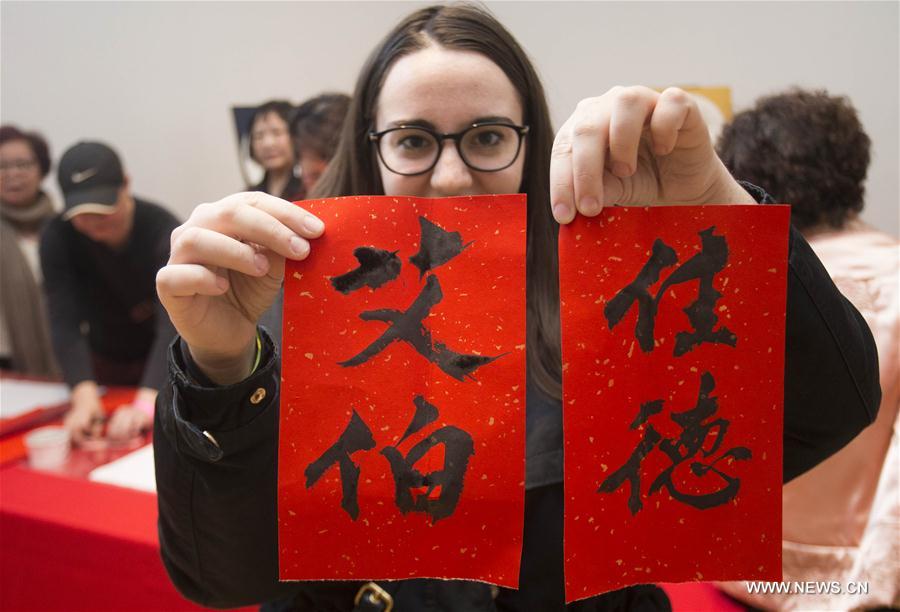 艾伯
佳德
WWW.NEWS.CN